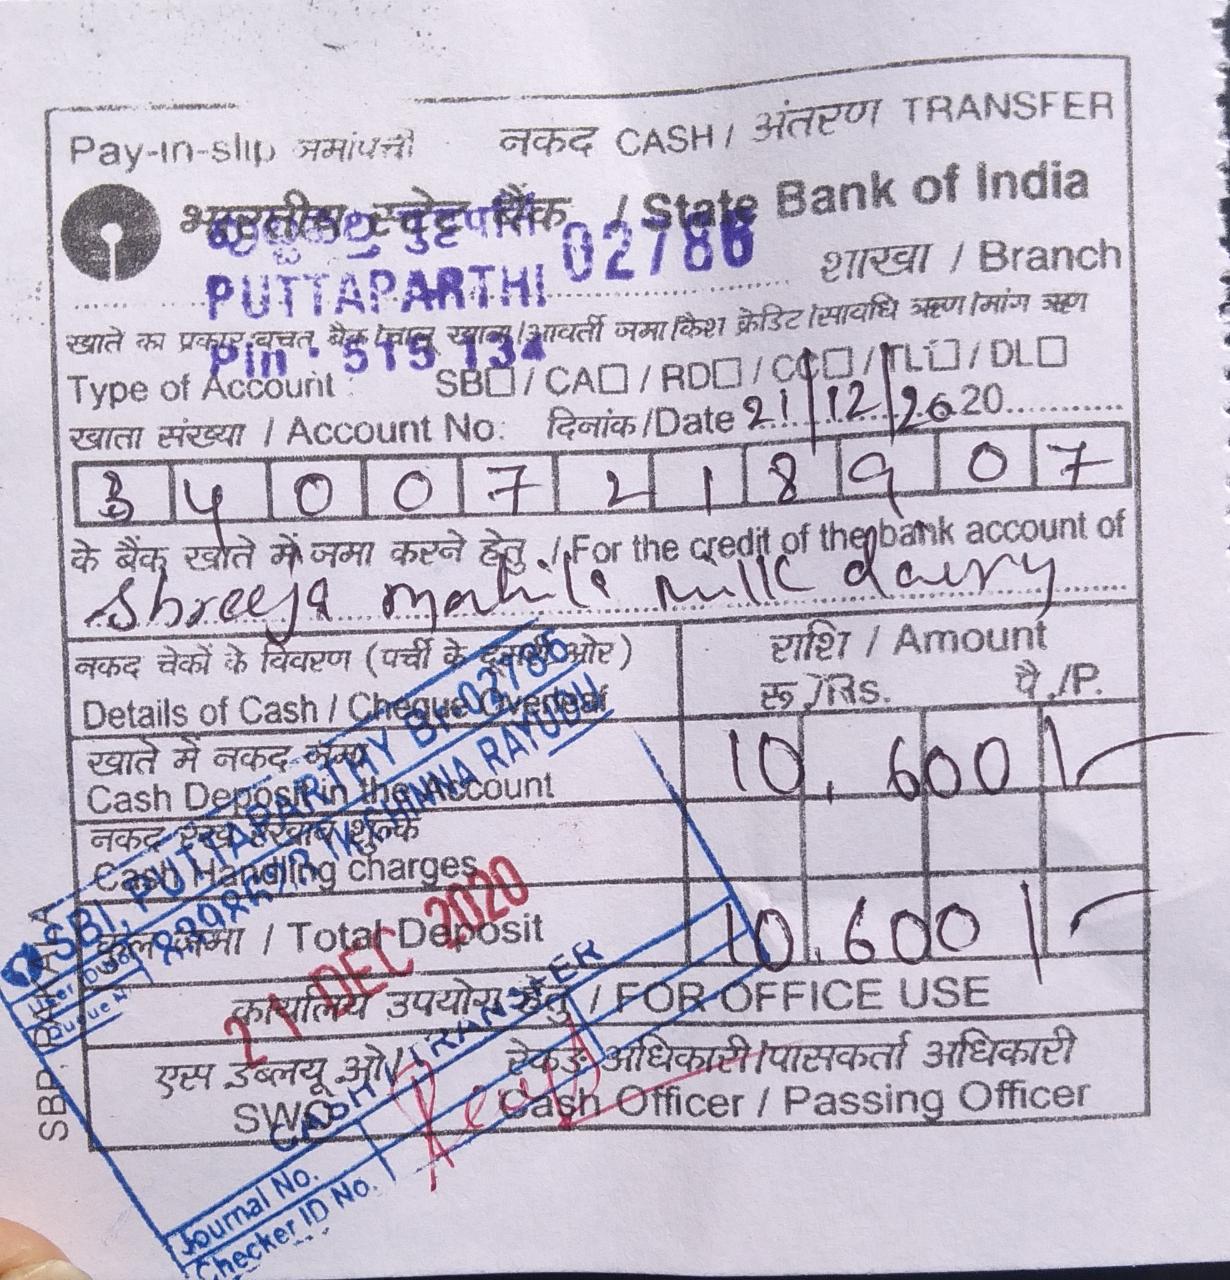 Pay-in-slip जमापर्ची नकद CASH / अंतरण TRANSFER
भारतीय स्टेट बैंक / State Bank of India
पुट्टपर्ति
PUTTAPARTHI 02786
शाखा / Branch
खाते का प्रकार बचत बैंक/चालू खाता/आवर्ती जमा/कैश क्रेडिट/सावधि ऋण/मांग ऋण
Pin : 515 134
Type of Account : SB☐ / CA☐ / RD☐ / CC☐ / TL☐ / DL☐
खाता संख्या / Account No: दिनांक /Date 21/12/2020
3 4 0 0 7 2 1 8 9 0 7
के बैंक खाते में जमा करने हेतु ./ For the credit of the bank account of
Shreeja mahila milk dairy
नकद चेकों के विवरण (पर्ची के दूसरी ओर) राशि / Amount
Details of Cash / Cheque Overleaf रू ./Rs. पै ./P.
खाते में नकद जमा
Cash Deposit in the Account 10,600/-
नकद रख रखाव शुल्क
Cash Handling charges
कुल जमा / Total Deposit 10,600/-
कार्यालय उपयोग हेतु / FOR OFFICE USE
एस डब्लयू ओ/ रोकड़ अधिकारी/पासकर्ता अधिकारी
SWO Cash Officer / Passing Officer
SBI, PUTTAPARTHY Br-02786
21 DEC 2020
CASH / TRANSFER
Journal No.
Checker ID No.